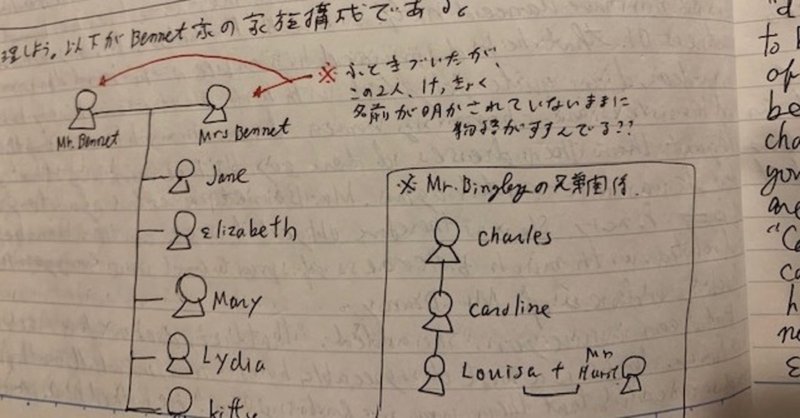 理しよう。以下がBennet家の家族構成である。
※ ふときづいたが、
この2人、けっきょく
名前が明かされていないままに
物語がすすんでる??
Mr. Bennet
Mrs Bennet
Jane
Elizabeth
Mary
Lydia
kitty
※ Mr. Bingleyの兄弟関係.
charles
caroline
Louisa + Mr Hurst
"d
to
op
be
cha
you
are
"Ca
ca
h
ne